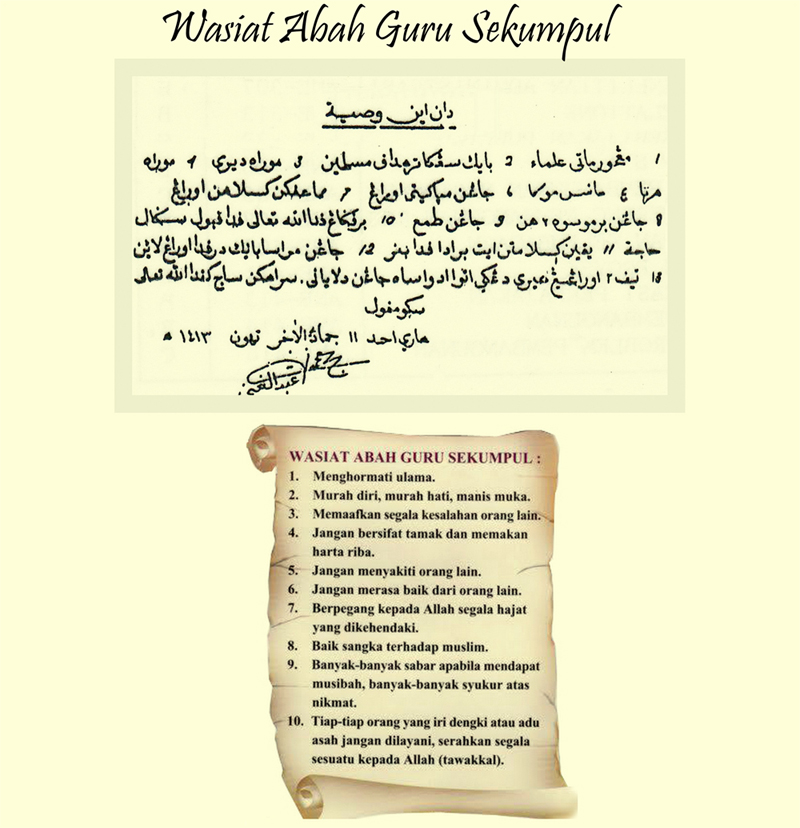 Wasiat Abah Guru Sekumpul
دان اين وصية
1 مڠحورماتي علماء 2 باٸيك سڠكا ترهدف مسلمين 3 موراه ديري 4 موراه
هرتا 5 مانس موكا 6 جاڠن مڽاكيتي اورڠ 7 ممأفكن كسلاهن اورڠ
8 جاڠن برموسوه٢هن 9 جاڠن طمع 10 برڤݢاڠ ڤدا الله تعالى ڤدا قبول سݢال
حاجة 11 يقين كسلامتن ايت برادا ڤدا بنر 12 جاڠن مراسا باٸيك درڤدا اورڠ لاٸين
13 تيڤ٢ اورڠ يڠ ايري دڠكي اتوا ادو اساه جاڠن دلاياني، سراهكن ساج كڤدا الله تعالى
سكومڤول
هاري احد 11 جمادى الأخر تهون ١٤١٣ ه
WASIAT ABAH GURU SEKUMPUL :
1. Menghormati ulama.
2. Murah diri, murah hati, manis muka.
3. Memaafkan segala kesalahan orang lain.
4. Jangan bersifat tamak dan memakan
harta riba.
5. Jangan menyakiti orang lain.
6. Jangan merasa baik dari orang lain.
7. Berpegang kepada Allah segala hajat
yang dikehendaki.
8. Baik sangka terhadap muslim.
9. Banyak-banyak sabar apabila mendapat
musibah, banyak-banyak syukur atas
nikmat.
10. Tiap-tiap orang yang iri dengki atau adu
asah jangan dilayani, serahkan segala
sesuatu kepada Allah (tawakkal).